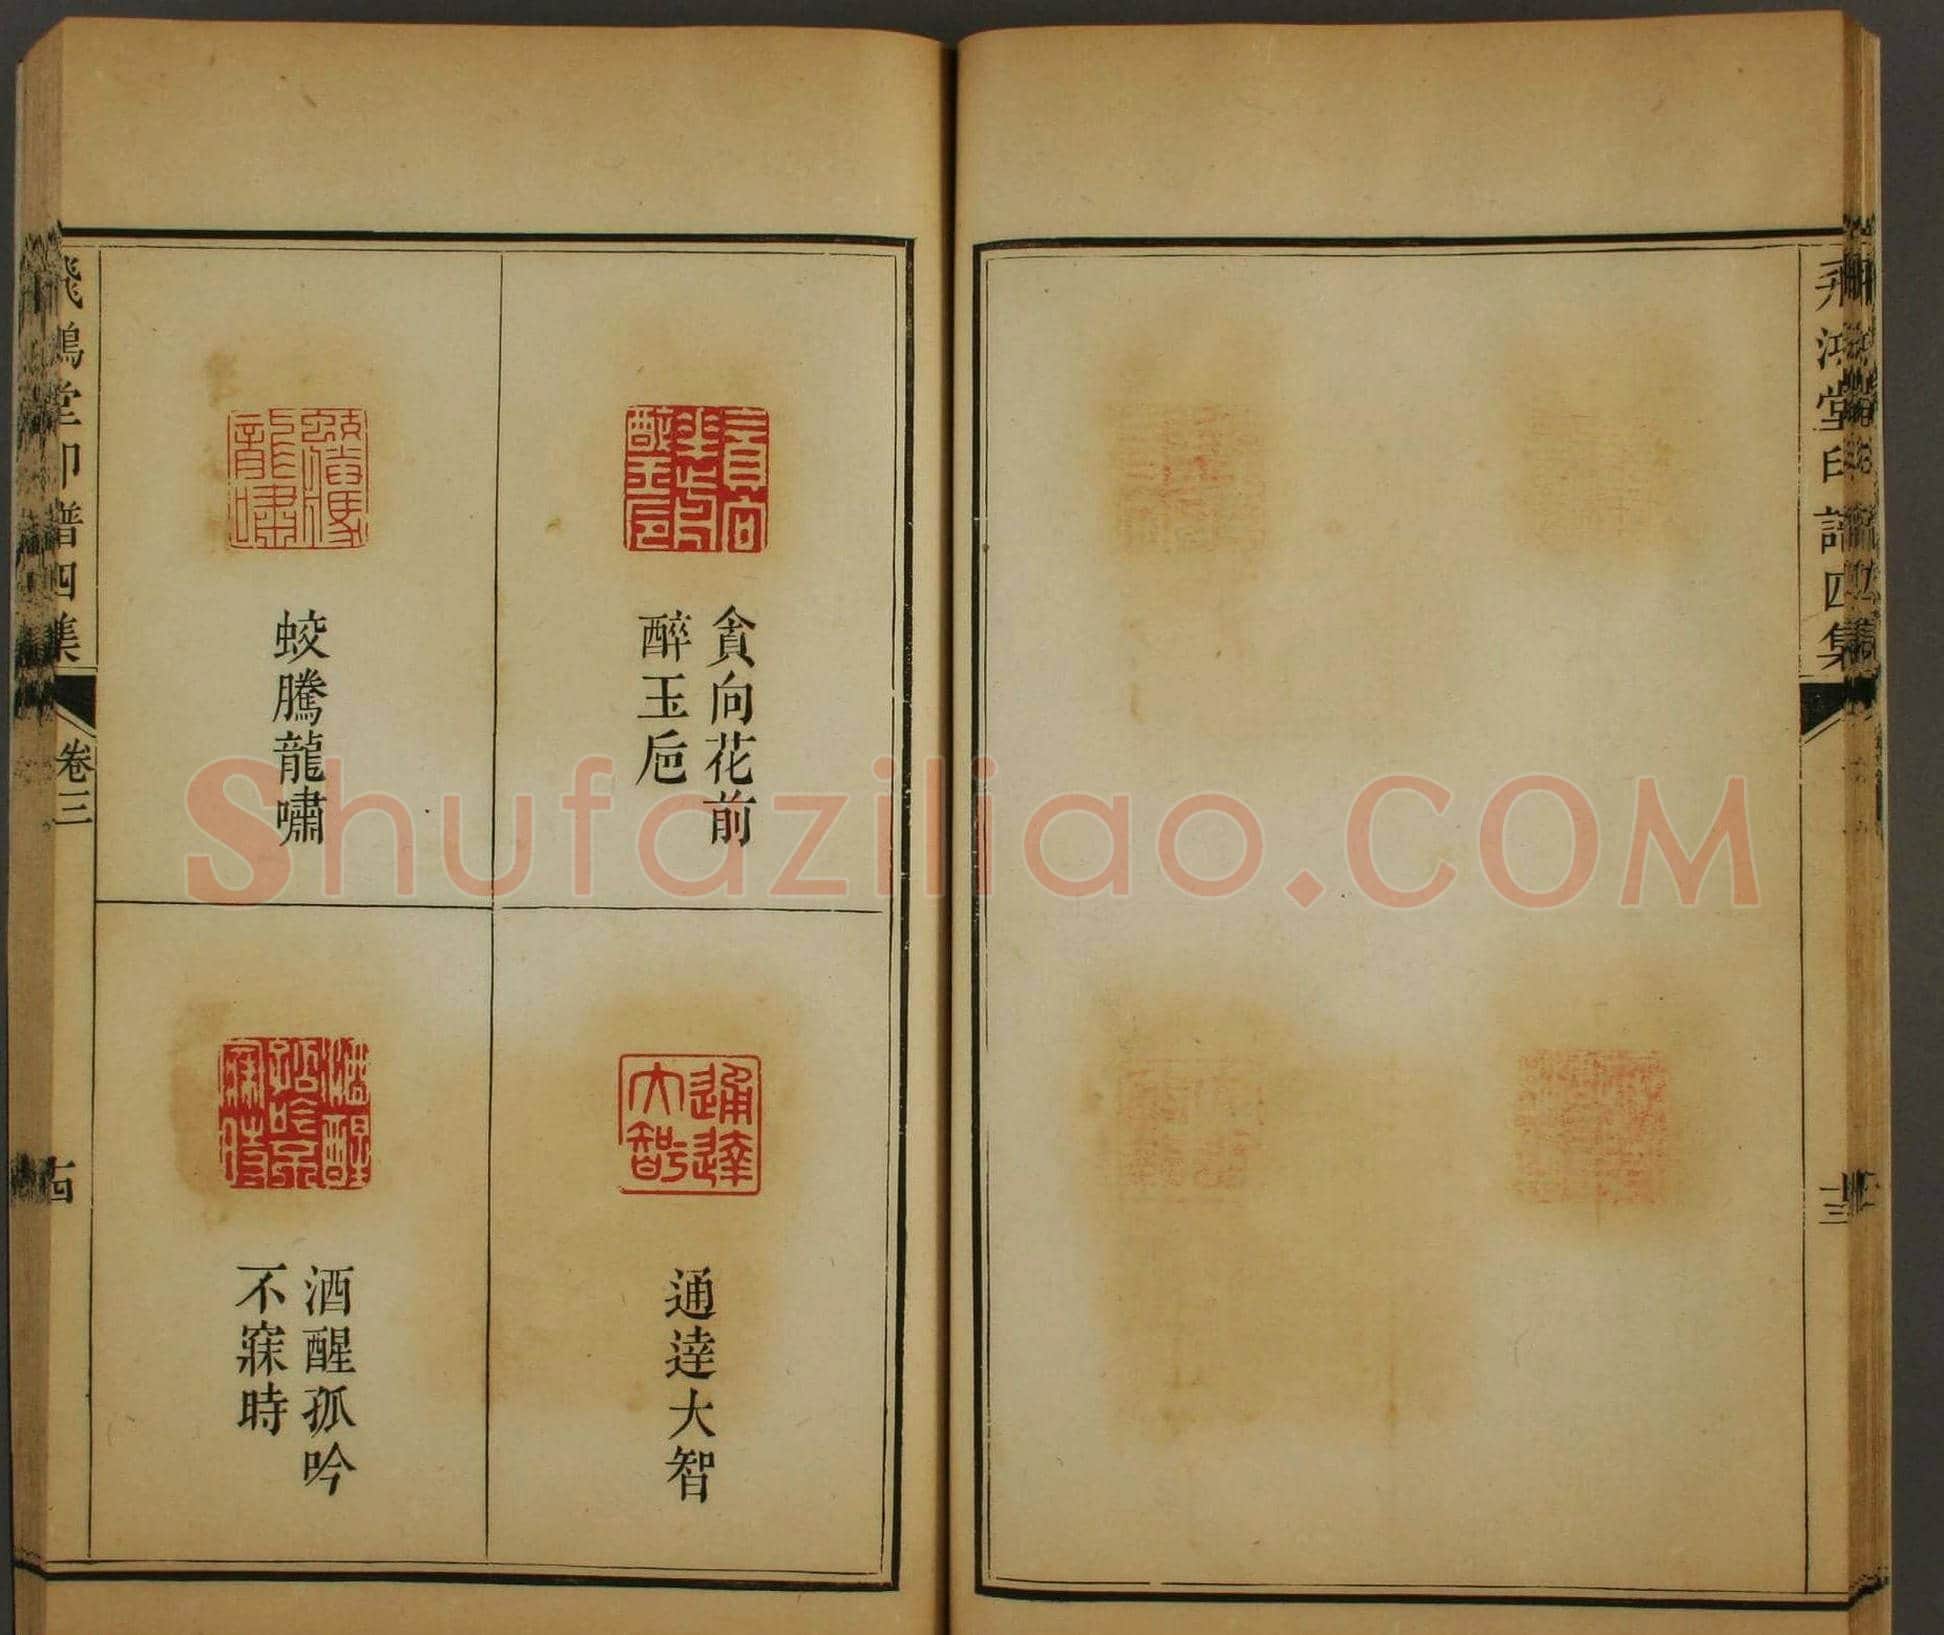 飛鴻堂印譜四集
十三
貪向花前
醉玉巵
通達大智
蛟騰龍嘯
酒醒孤吟
不寐時
飛鴻堂印譜四集
卷三
十四
Shufaziliao.COM